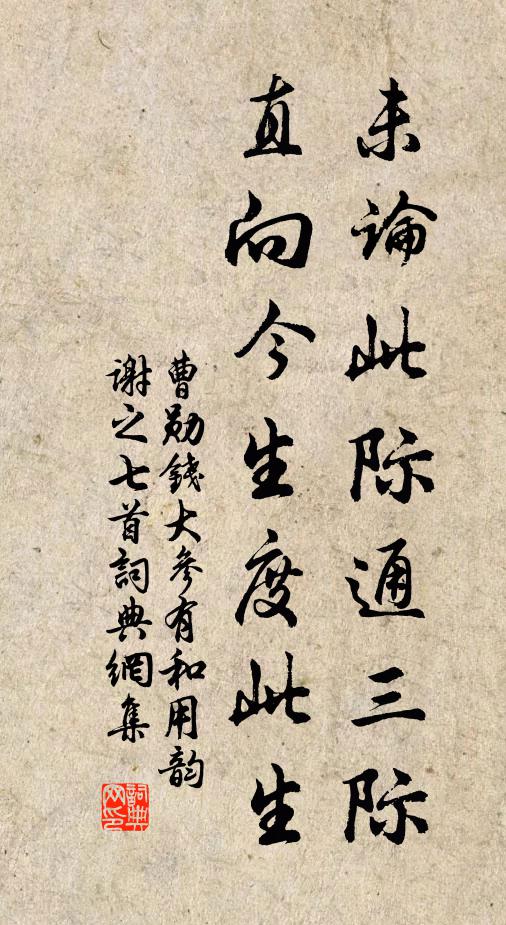 未論此际通三际
直向今生度此生
曹勋錢大參有和用韵
謝之七首詞典網集
詞典
网印